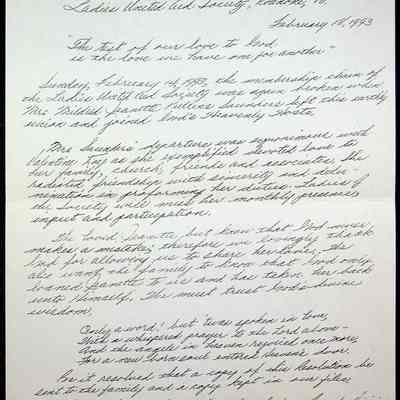 Ladies United Aid Society, Roanoke, Va.
February 18, 1993
"The test of our love to God
is the love we have one for another"
Sunday, February 14, 1993, the membership chain of
the Ladies United Aid Society was again broken when
Mrs. Mildred Jeanette Pullins Saunders left this earthly
union and joined God's Heavenly Hosts.
Mrs. Saunders' departure was synonimous with
Valentine Day as she exemplified devoted love to
her family, church, friends and associates. She
radiated friendship with sincerity and deter-
mination in performing her duties. Ladies of
the Society will miss her monthly presence,
input and participation.
We loved Jeanette, but know that God never
makes a mistake; therefore we lovingly thank
God for allowing us to share her love. We
also want the family to know that God only
loaned Jeanette to us and has taken her back
unto Himself. We must trust God's divine
wisdom.
Only a word! but 'twas spoken in love,
With a whispered prayer to the Lord above-
And the angels in heaven rejoiced once more,
For a new born soul entered heaven's door.
For it resolved that a copy of this Resolution be
sent to the family and a copy kept in our files.